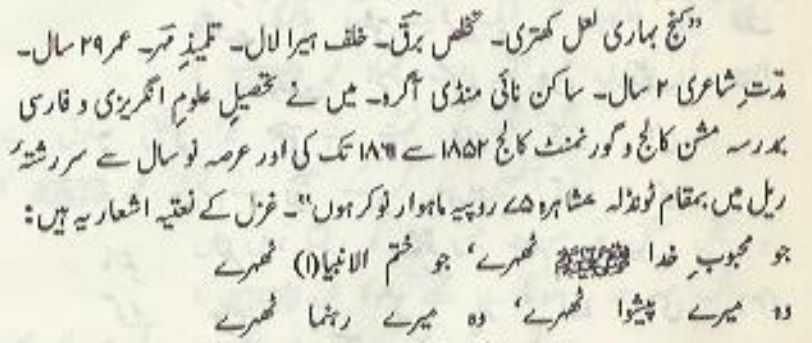 "کنج بہاری لعل کھتری۔ تخلص برق۔ خلف ہیرا لال۔ تلمیذِ مہر۔ عمر ۲۹ سال۔
مدّتِ شاعری ۲ سال۔ ساکن نائی منڈی آگرہ۔ میں نے تحصیلِ علومِ انگریزی و فارسی
بدرسہ مشن کالج و گورنمنٹ کالج ۱۸۵۲ سے تک کی اور عرصہ نو سال سے سررشتۂ
ریل میں بمقام ٹونڈلہ عشاہرہ ۷۵ روپیہ ماہوار نوکر ہوں"۔ غزل کے نعتیہ اشعار یہ ہیں:
جو محبوبِ خدا ﷺ ٹھہرے، جو ختم الانبیا(۱) ٹھہرے
وہ میرے پیشوا ٹھہرے، وہ میرے رہنما ٹھہرے